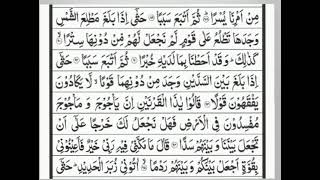 مِنْ اَمْرِنَا يُسْرًا ۝ ثُمَّ اَتْبَعَ سَبَبًا ۝ حَتّٰۤى اِذَا بَلَغَ مَطْلِعَ الشَّمْسِ
وَجَدَهَا تَطْلُعُ عَلٰى قَوْمٍ لَّمْ نَجْعَلْ لَّهُمْ مِّنْ دُوْنِهَا سِتْرًا ۝
كَذٰلِكَ ؕ وَقَدْ اَحَطْنَا بِمَا لَدَيْهِ خُبْرًا ۝ ثُمَّ اَتْبَعَ سَبَبًا ۝ حَتّٰۤى
اِذَا بَلَغَ بَيْنَ السَّدَّيْنِ وَجَدَ مِنْ دُوْنِهِمَا قَوْمًا ۙ لَّا يَكَادُوْنَ
يَفْقَهُوْنَ قَوْلًا ۝ قَالُوْا يٰذَا الْقَرْنَيْنِ اِنَّ يَاْجُوْجَ وَمَاْجُوْجَ
مُفْسِدُوْنَ فِى الْاَرْضِ فَهَلْ نَجْعَلُ لَكَ خَرْجًا عَلٰۤى اَنْ
تَجْعَلَ بَيْنَنَا وَبَيْنَهُمْ سَدًّا ۝ قَالَ مَا مَكَّنِّىْ فِيْهِ رَبِّىْ خَيْرٌ فَاَعِيْنُوْنِىْ
بِقُوَّةٍ اَجْعَلْ بَيْنَكُمْ وَبَيْنَهُمْ رَدْمًا ۝ اٰتُوْنِىْ زُبَرَ الْحَدِيْدِ ؕ حَتّٰۤى